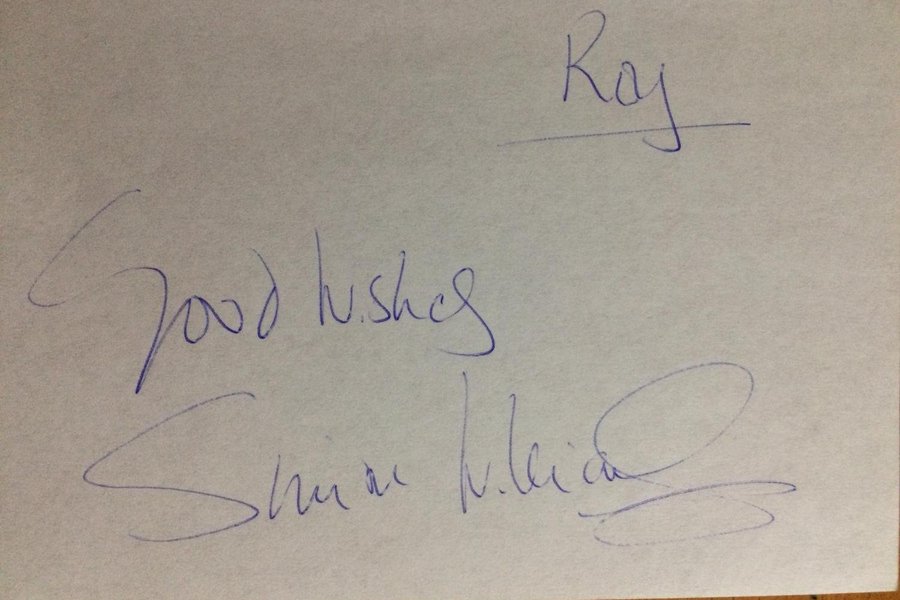 Ray
Good Wishes
Simon Williams